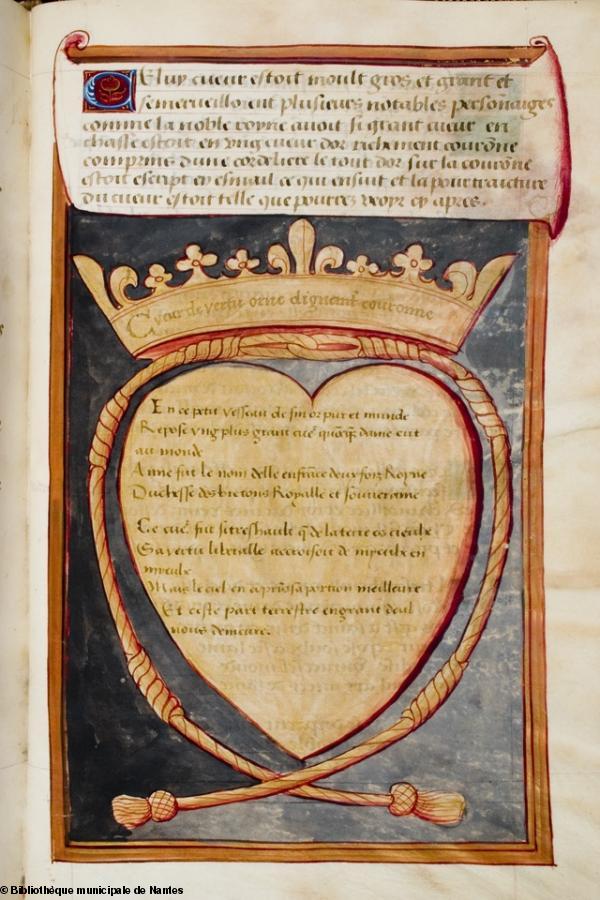 Celuy cueur estoit moult gros et grant et
semerveilloient plusieurs notables personaiges
comme la noble royne avoit si grant cueur en
chasse estoit en ung cueur dor richement couronne
comprins dune cordeliere le tout dor sur la couronne
estoit escript en esmail ce qui ensuit et la pourtraicture
du cueur estoit telle que pourres veoyr cy apres.
Cueur de vertu orne dignement couronne
En ce petit vesseau de fin or pur et munde
Repose ung plus grant cueur que oncques dame eut
au monde
Anne fut le nom delle en france deux fois Royne
Duchesse des bretons Royalle et souveraine
Ce cueur fut si treshault que de la terre es cieulx
Sa vertu liberalle accroissoit de myeulx en
myeulx
Mais le ciel en a prins sa portion meilleure
Et ceste part terrestre en grant deul
nous demeure.
© Bibliothèque municipale de Nantes